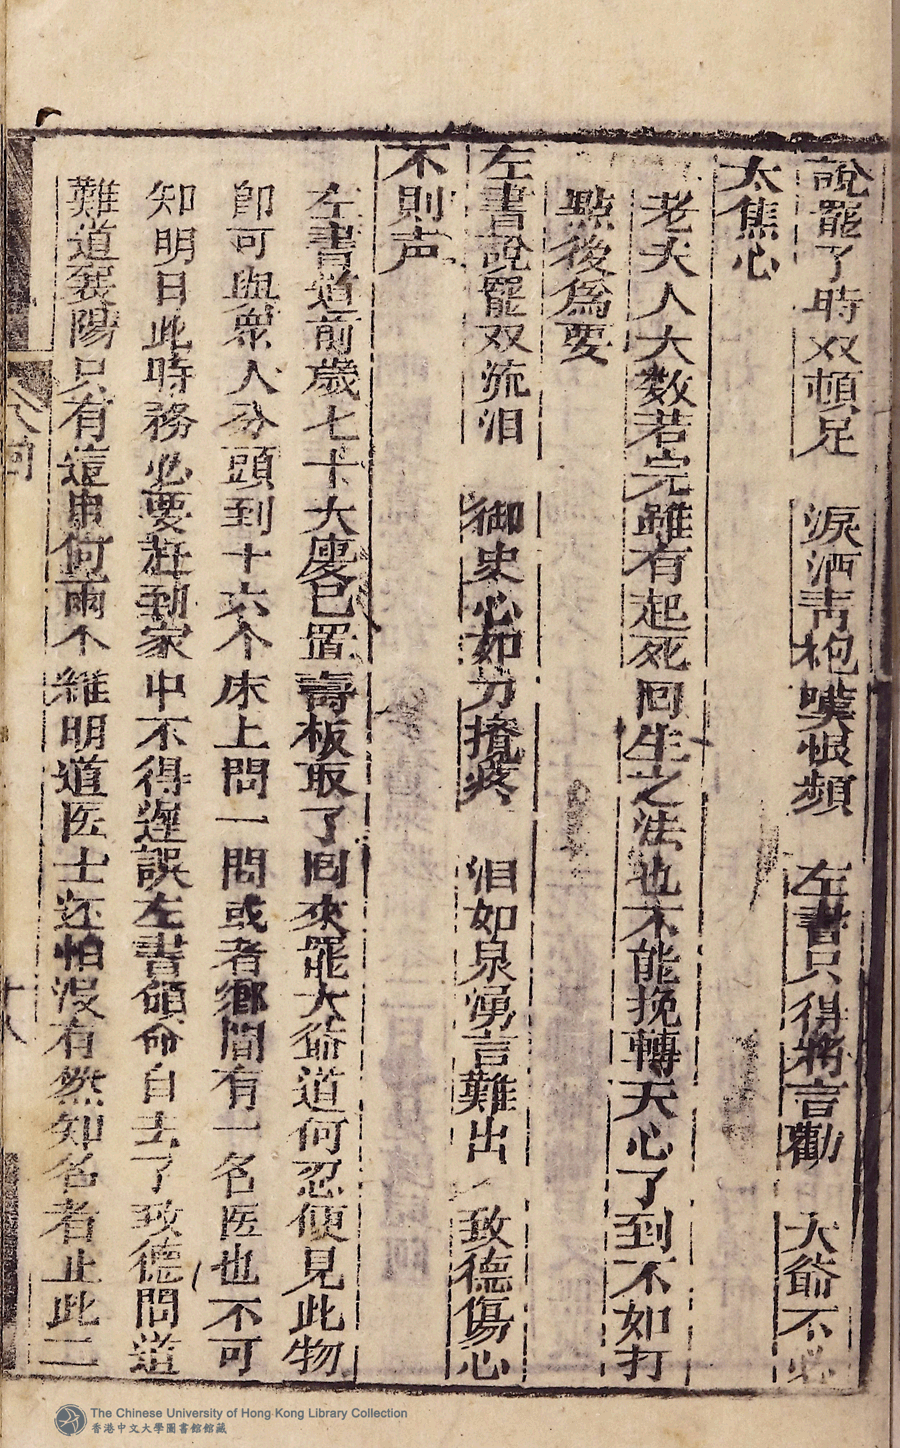 說罷了時双頓足　淚洒青袍嘆恨頻　左書只得將言勸　大爺不必
太焦心
老夫人大数若完雖有起死回生之法也不能挽轉天心了到不如打
點後為要
左書說罷双流泪　御史心如刀攪疼　泪如泉湧言難出　致德傷心
不則声
左書道前歲七十大慶已置壽板取了囬來罷大爺道何忍便見此物
即可與衆人分頭到十六个床上問一問或者鄉間有一名医也不可
知明日此時務必要赶到家中不得遲誤左書領命自去了致德問道
難道襄陽只有這申何兩个雖明道医士还怕没有然知名者止此二
十八
The Chinese University of Hong Kong Library Collection
香港中文大學圖書館館藏